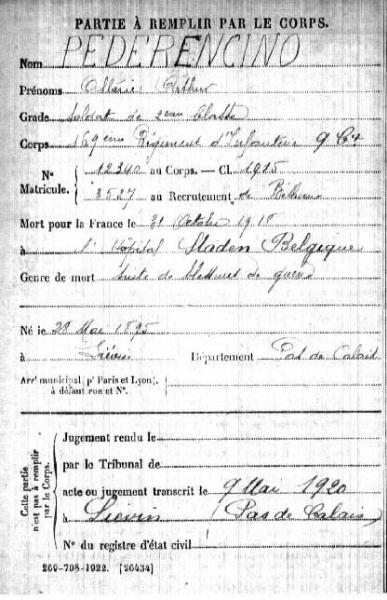 PARTIE À REMPLIR PAR LE CORPS.
Nom PEDERENCINO
Prénoms Olléric Arthur
Grade Soldat de 2ème Classe
Corps 169ème Régiment d'Infanterie 9 Cie
N° Matricule. 12340 au Corps. — Cl. 1915
3527 au Recrutement de Béthune
Mort pour la France le 31 Octobre 1918
à l'Hôpital Staden Belgique
Genre de mort suite de blessures de guerre
Né le 28 Mai 1895
à Liévin Département Pas de Calais
Arr' municipal (p' Paris et Lyon),
à défaut rue et N°.
Cette partie
n'est pas à remplir
par le Corps.
Jugement rendu le
par le Tribunal de
acte ou jugement transcrit le 9 Mai 1920
à Liévin (Pas de Calais)
N° du registre d'état civil
260-708-1922. [26434]